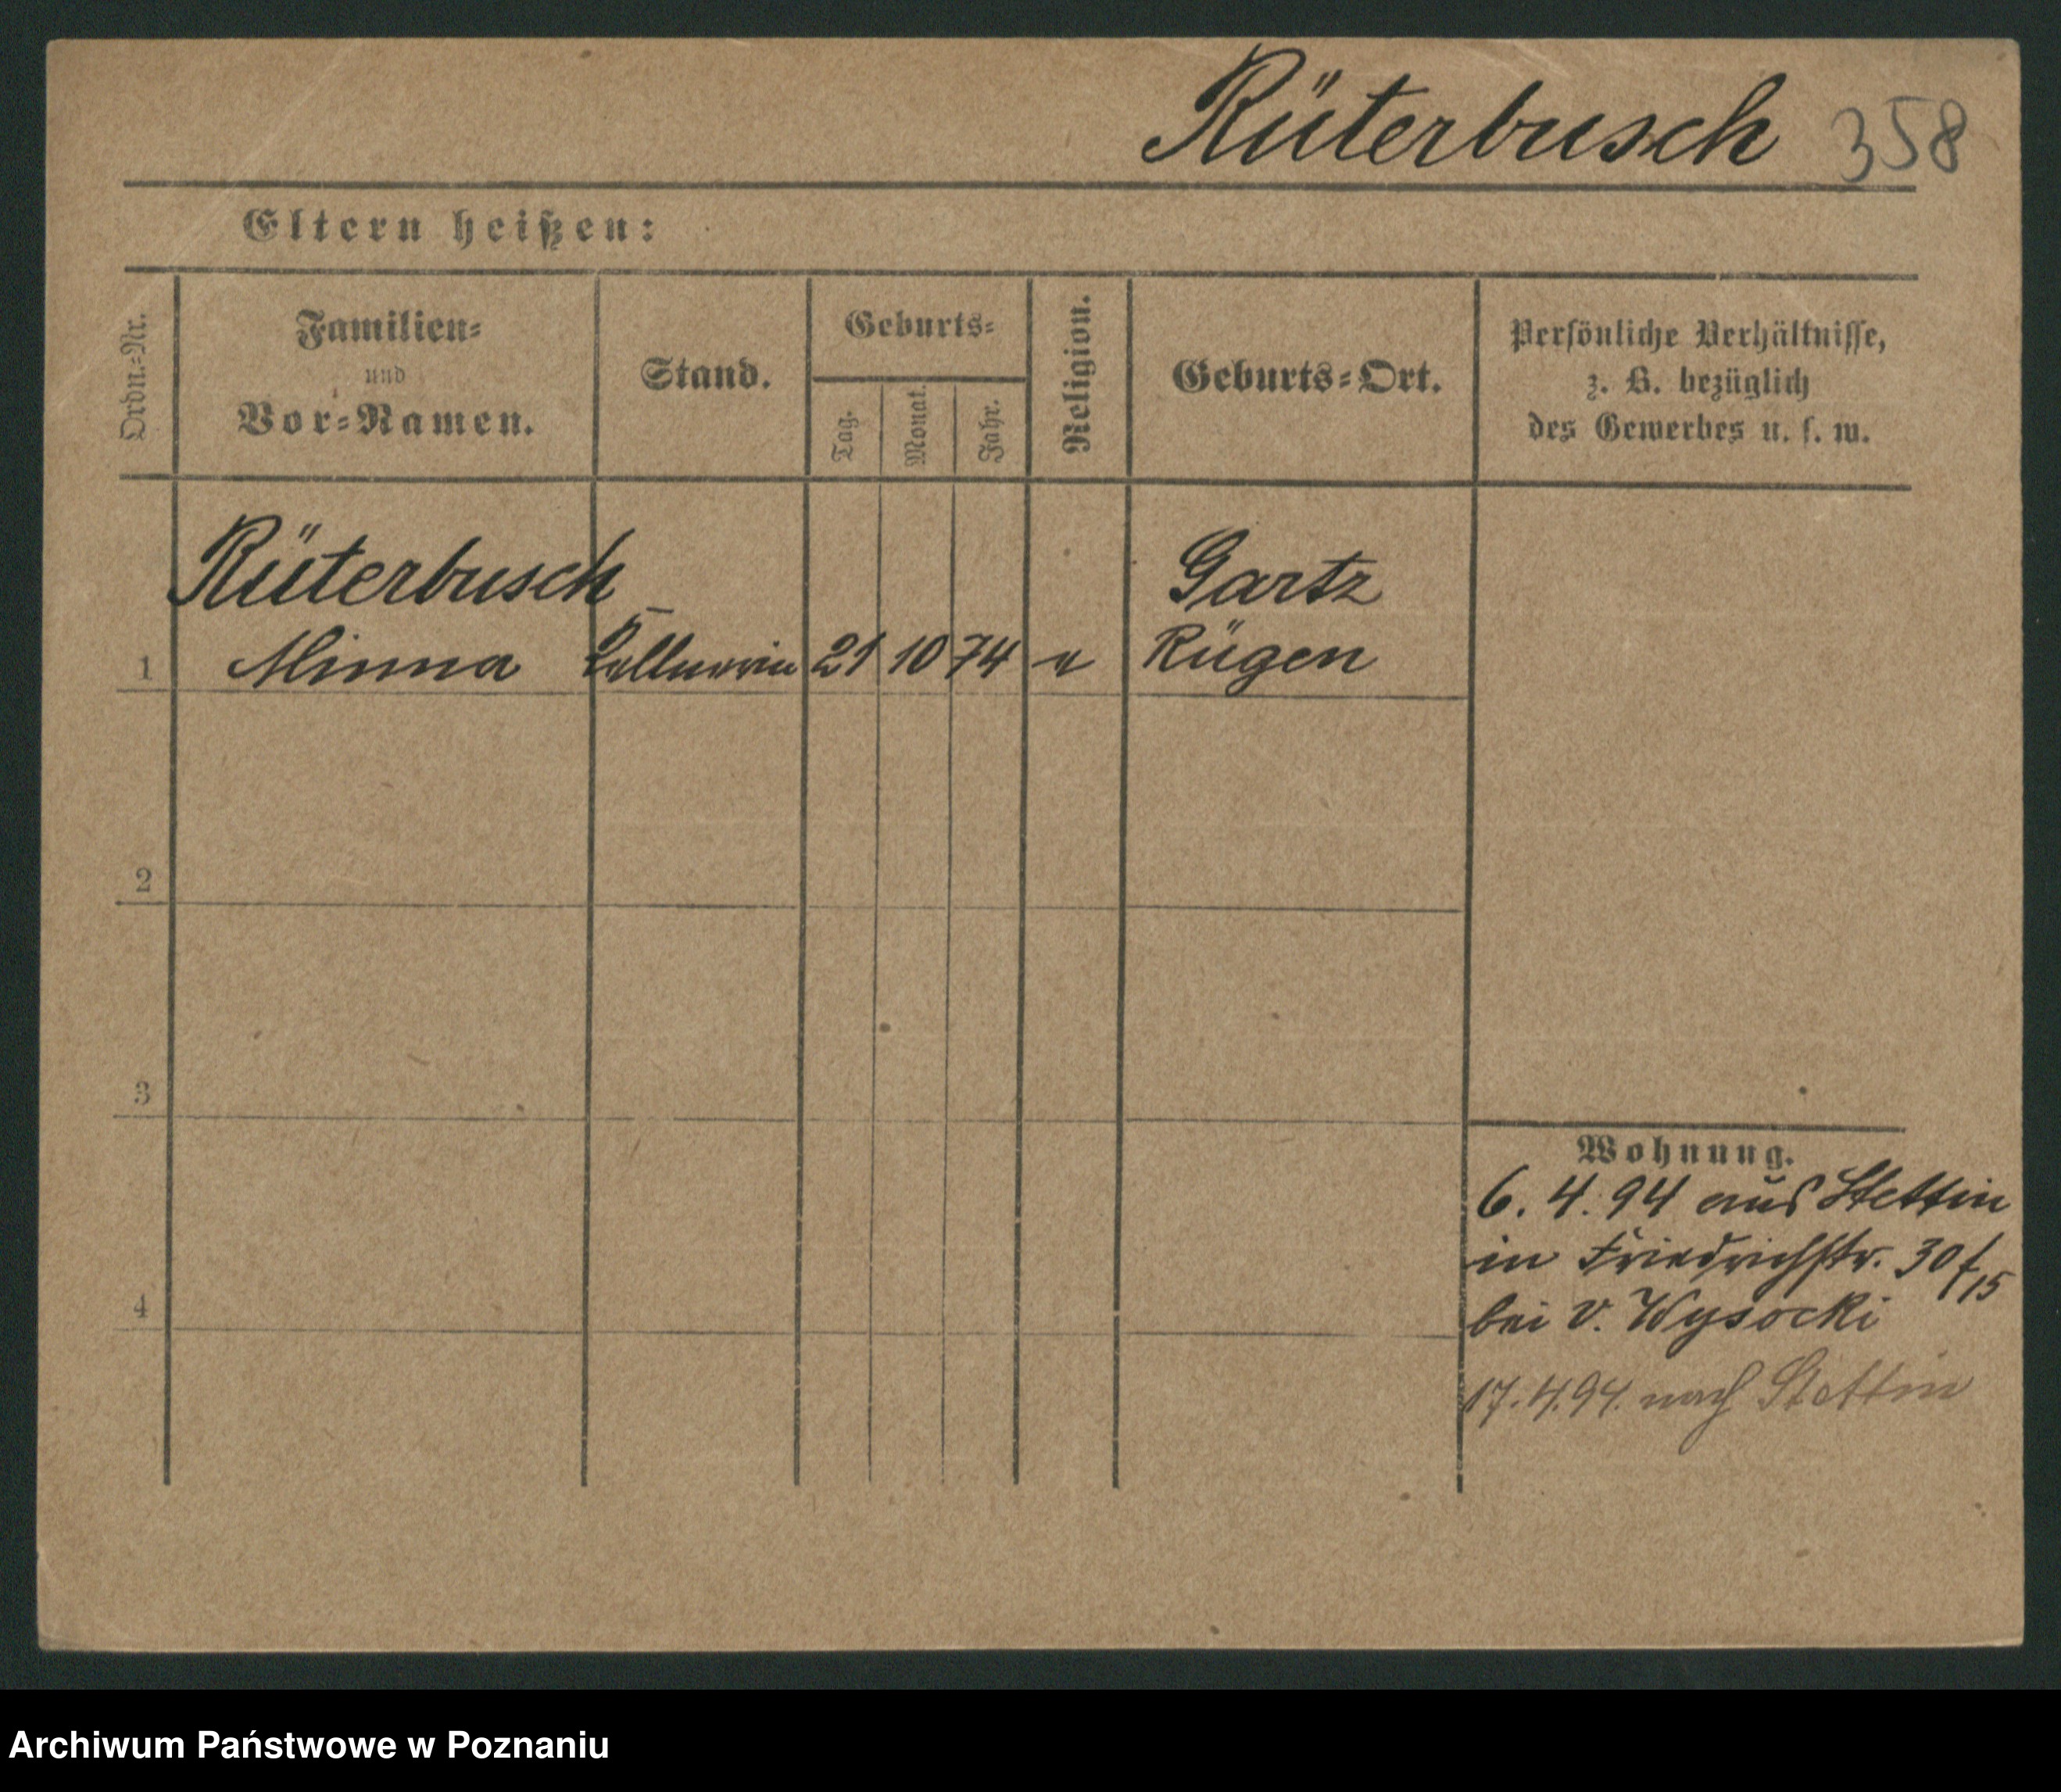 Rüterbusch 358
Eltern heißen:
Ordn.=Nr.
Familien=
und
Vor=Namen.
Stand.
Geburts=
Tag.
Monat.
Jahr.
Religion.
Geburts=Ort.
Persönliche Verhältnisse,
z. B. bezüglich
des Gewerbes u. s. w.
Rüterbusch
Gartz
1 Minna Kellnerin 21 10 74 e Rügen
2
3
4
Wohnung.
6. 4. 94 aus Stettin
in Friedrichstr. 30/15
bei v. Wysocki
17. 4. 94. nach Stettin
Archiwum Państwowe w Poznaniu